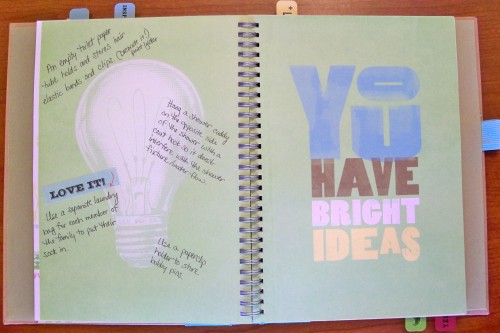 An empty toilet paper
tube holds and stores hair
elastic bands and clips (decorate it!)
Hang a shower caddy
on the opposite side
of the shower with a
coat hook so it doesn't
interfere with the shower
fixture/water flow.
LOVE IT!
Use a separate laundry
bag for each member of
the family to put their
sock in.
Use a paperclip
holder to store
bobby pins
YOU
HAVE
BRIGHT
IDEAS